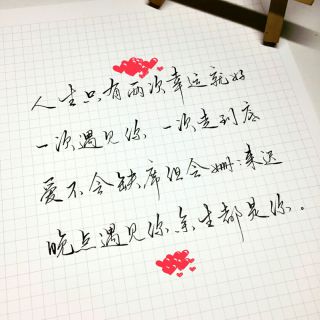 人生只有两次幸运就好
一次遇见你 一次走到底
爱不会缺席但会姗姗来迟
晚点遇见你余生都是你。